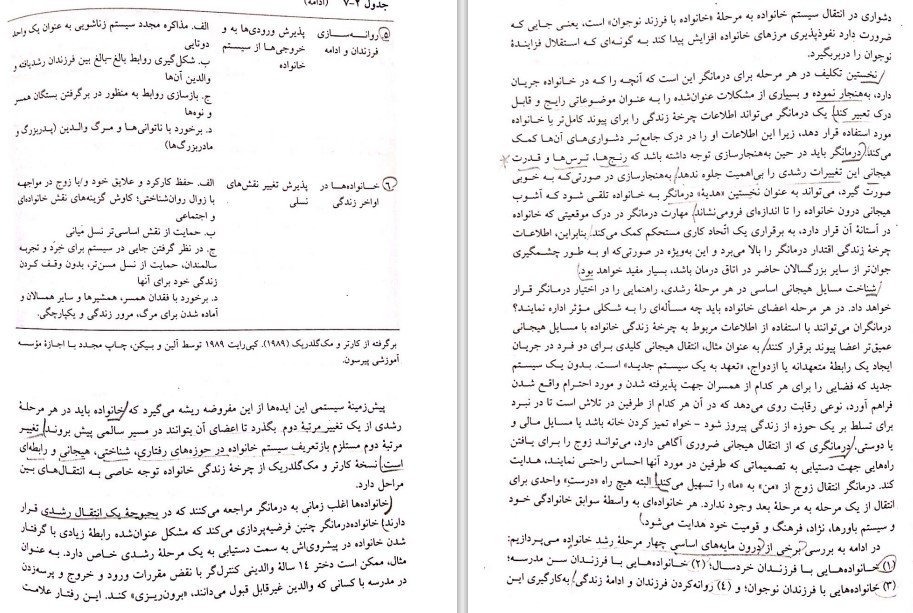 جدول ۲-۷ (ادامه)
۵. روانه‌سازی
فرزندان و ادامه
زندگی
پذیرش ورودی‌ها به و
خروجی‌ها از سیستم
خانواده
الف. مذاکره مجدد سیستم زناشویی به عنوان یک واحد
دوتایی
ب. شکل‌گیری روابط بالغ-بالغ بین فرزندان رشدیافته و
والدین آن‌ها
ج. بازسازی روابط به منظور در برگرفتن بستگان همسر
و نوه‌ها
د. برخورد با ناتوانی‌ها و مرگ والدین (پدربزرگ و
مادربزرگ‌ها)
۶. خانواده‌ها در
اواخر زندگی
پذیرش تغییر نقش‌های
نسلی
الف. حفظ کارکرد و علایق خود و/یا زوج در مواجهه
با زوال روان‌شناختی؛ کاوش گزینه‌های نقش خانواده‌ای
و اجتماعی
ب. حمایت از نقش اساسی‌تر نسل میانی
ج. در نظر گرفتن جایی در سیستم برای خِرَد و تجربه
سالمندان، حمایت از نسل مسن‌تر، بدون وقف کردن
زندگی خود برای آنها
د. برخورد با فقدان همسر، همشیرها و سایر همسالان و
آماده شدن برای مرگ، مرور زندگی و یکپارچگی.
برگرفته از کارتر و مک‌گلدریک (۱۹۸۹). کپی‌رایت ۱۹۸۹ توسط آلین و بیکن، چاپ مجدد با اجازهٔ مؤسسه
آموزشی پیرسون.
پیش‌زمینهٔ سیستمی این ایده‌ها از این مفروضه ریشه می‌گیرد که خانواده باید در هر مرحلهٔ
رشدی از یک تغییر مرتبهٔ دوم بگذرد تا اعضای آن بتوانند در مسیر سالمی پیش بروند. تغییر
مرتبهٔ دوم مستلزم بازتعریف سیستم خانواده در حوزه‌های رفتاری، شناختی، هیجانی و رابطه‌ای
است. نسخهٔ کارتر و مک‌گلدریک از چرخهٔ زندگی خانواده توجه خاصی به انتقال‌های بین
مراحل دارد.
خانواده‌ها اغلب زمانی به درمانگر مراجعه می‌کنند که در بحبوحهٔ یک انتقال رشدی قرار
دارند. خانواده‌درمانگر چنین فرضیه‌پردازی می‌کند که مشکل عنوان‌شده رابطهٔ زیادی با گرفتار
شدن خانواده در پیشروی‌اش به سمت دستیابی به یک مرحلهٔ رشدی خاص دارد. به عنوان
مثال، ممکن است دختر ۱۴ سالهٔ والدینی کنترل‌گر با نقض مقررات ورود و خروج و پرسه‌زدن
در مدرسه با کسانی که والدین غیرقابل قبول می‌دانند، «برون‌ریزی» کند. این رفتار علامت
دشواری در انتقال سیستم خانواده به مرحلهٔ «خانواده با فرزند نوجوان» است، یعنی جایی که
ضرورت دارد نفوذپذیری مرزهای خانواده افزایش پیدا کند به گونه‌ای که استقلال فزایندهٔ
نوجوان را دربربگیرد.
نخستین تکلیف در هر مرحله برای درمانگر این است که آنچه را که در خانواده جریان
دارد، به‌هنجار نموده و بسیاری از مشکلات عنوان‌شده را به عنوان موضوعاتی رایج و قابل
درک تعبیر کند. یک درمانگر می‌تواند اطلاعات چرخهٔ زندگی را برای پیوند کامل‌تر با خانواده
مورد استفاده قرار دهد، زیرا این اطلاعات او را در درک جامع‌تر دشواری‌های آن‌ها کمک
می‌کند. درمانگر باید در حین به‌هنجارسازی توجه داشته باشد که رنج‌ها، ترس‌ها و قدرت
هیجانی این تغییرات رشدی را بی‌اهمیت جلوه ندهد. به‌هنجارسازی در صورتی‌که به خوبی
صورت گیرد، می‌تواند به عنوان نخستین «هدیهٔ» درمانگر به خانواده تلقی شود که آشوب
هیجانی درون خانواده را تا اندازه‌ای فرومی‌نشاند. مهارت درمانگر در درک موقعیتی که خانواده
در آستانهٔ آن قرار دارد، به برقراری یک اتّحاد کاری مستحکم کمک می‌کند. بنابراین، اطلاعات
چرخهٔ زندگی اقتدار درمانگر را بالا می‌برد و این به‌ویژه در صورتی‌که او به طور چشمگیری
جوان‌تر از سایر بزرگسالان حاضر در اتاق درمان باشد، بسیار مفید خواهد بود.
شناخت مسایل هیجانی اساسی در هر مرحلهٔ رشدی، راهنمایی را در اختیار درمانگر قرار
خواهد داد. در هر مرحله اعضای خانواده باید چه مسأله‌ای را به شکلی مؤثر اداره نمایند؟
درمانگران می‌توانند با استفاده از اطلاعات مربوط به چرخهٔ زندگی خانواده با مسایل هیجانی
عمیق‌تر اعضا پیوند برقرار کنند. به عنوان مثال، انتقال هیجانی کلیدی برای دو فرد در جریان
ایجاد یک رابطهٔ متعهدانه یا ازدواج، «تعهد به یک سیستم جدید» است. بدون یک سیستم
جدید که فضایی را برای هر کدام از همسران جهت پذیرفته شدن و مورد احترام واقع شدن
فراهم آورد، نوعی رقابت روی می‌دهد که در آن هر کدام از طرفین در تلاش است تا در نبرد
برای تسلط بر یک حوزه از زندگی پیروز شود - خواه تمیز کردن خانه باشد یا مسایل مالی و
یا دوستی. درمانگری که از انتقال هیجانی ضروری آگاهی دارد، می‌تواند زوج را برای یافتن
راه‌هایی جهت دستیابی به تصمیماتی که طرفین در مورد آنها احساس راحتی نمایند، هدایت
کند. درمانگر انتقال زوج از «من» به «ما» را تسهیل می‌کند. البته هیچ راه «درستِ» واحدی برای
انتقال از یک مرحله به مرحلهٔ بعد وجود ندارد. هر خانواده‌ای به واسطهٔ سوابق خانوادگی خود
و سیستم باورها، نژاد، فرهنگ و قومیت خود هدایت می‌شود.
در ادامه به بررسی برخی از درون مایه‌های اساسی چهار مرحلهٔ رشد خانواده می‌پردازیم:
(۱) خانواده‌هایی با فرزندان خردسال؛ (۲) خانواده‌هایی با فرزندان سن مدرسه؛
(۳) خانواده‌هایی با فرزندان نوجوان؛ و (۴) روانه‌کردن فرزندان و ادامهٔ زندگی. به‌کارگیری این